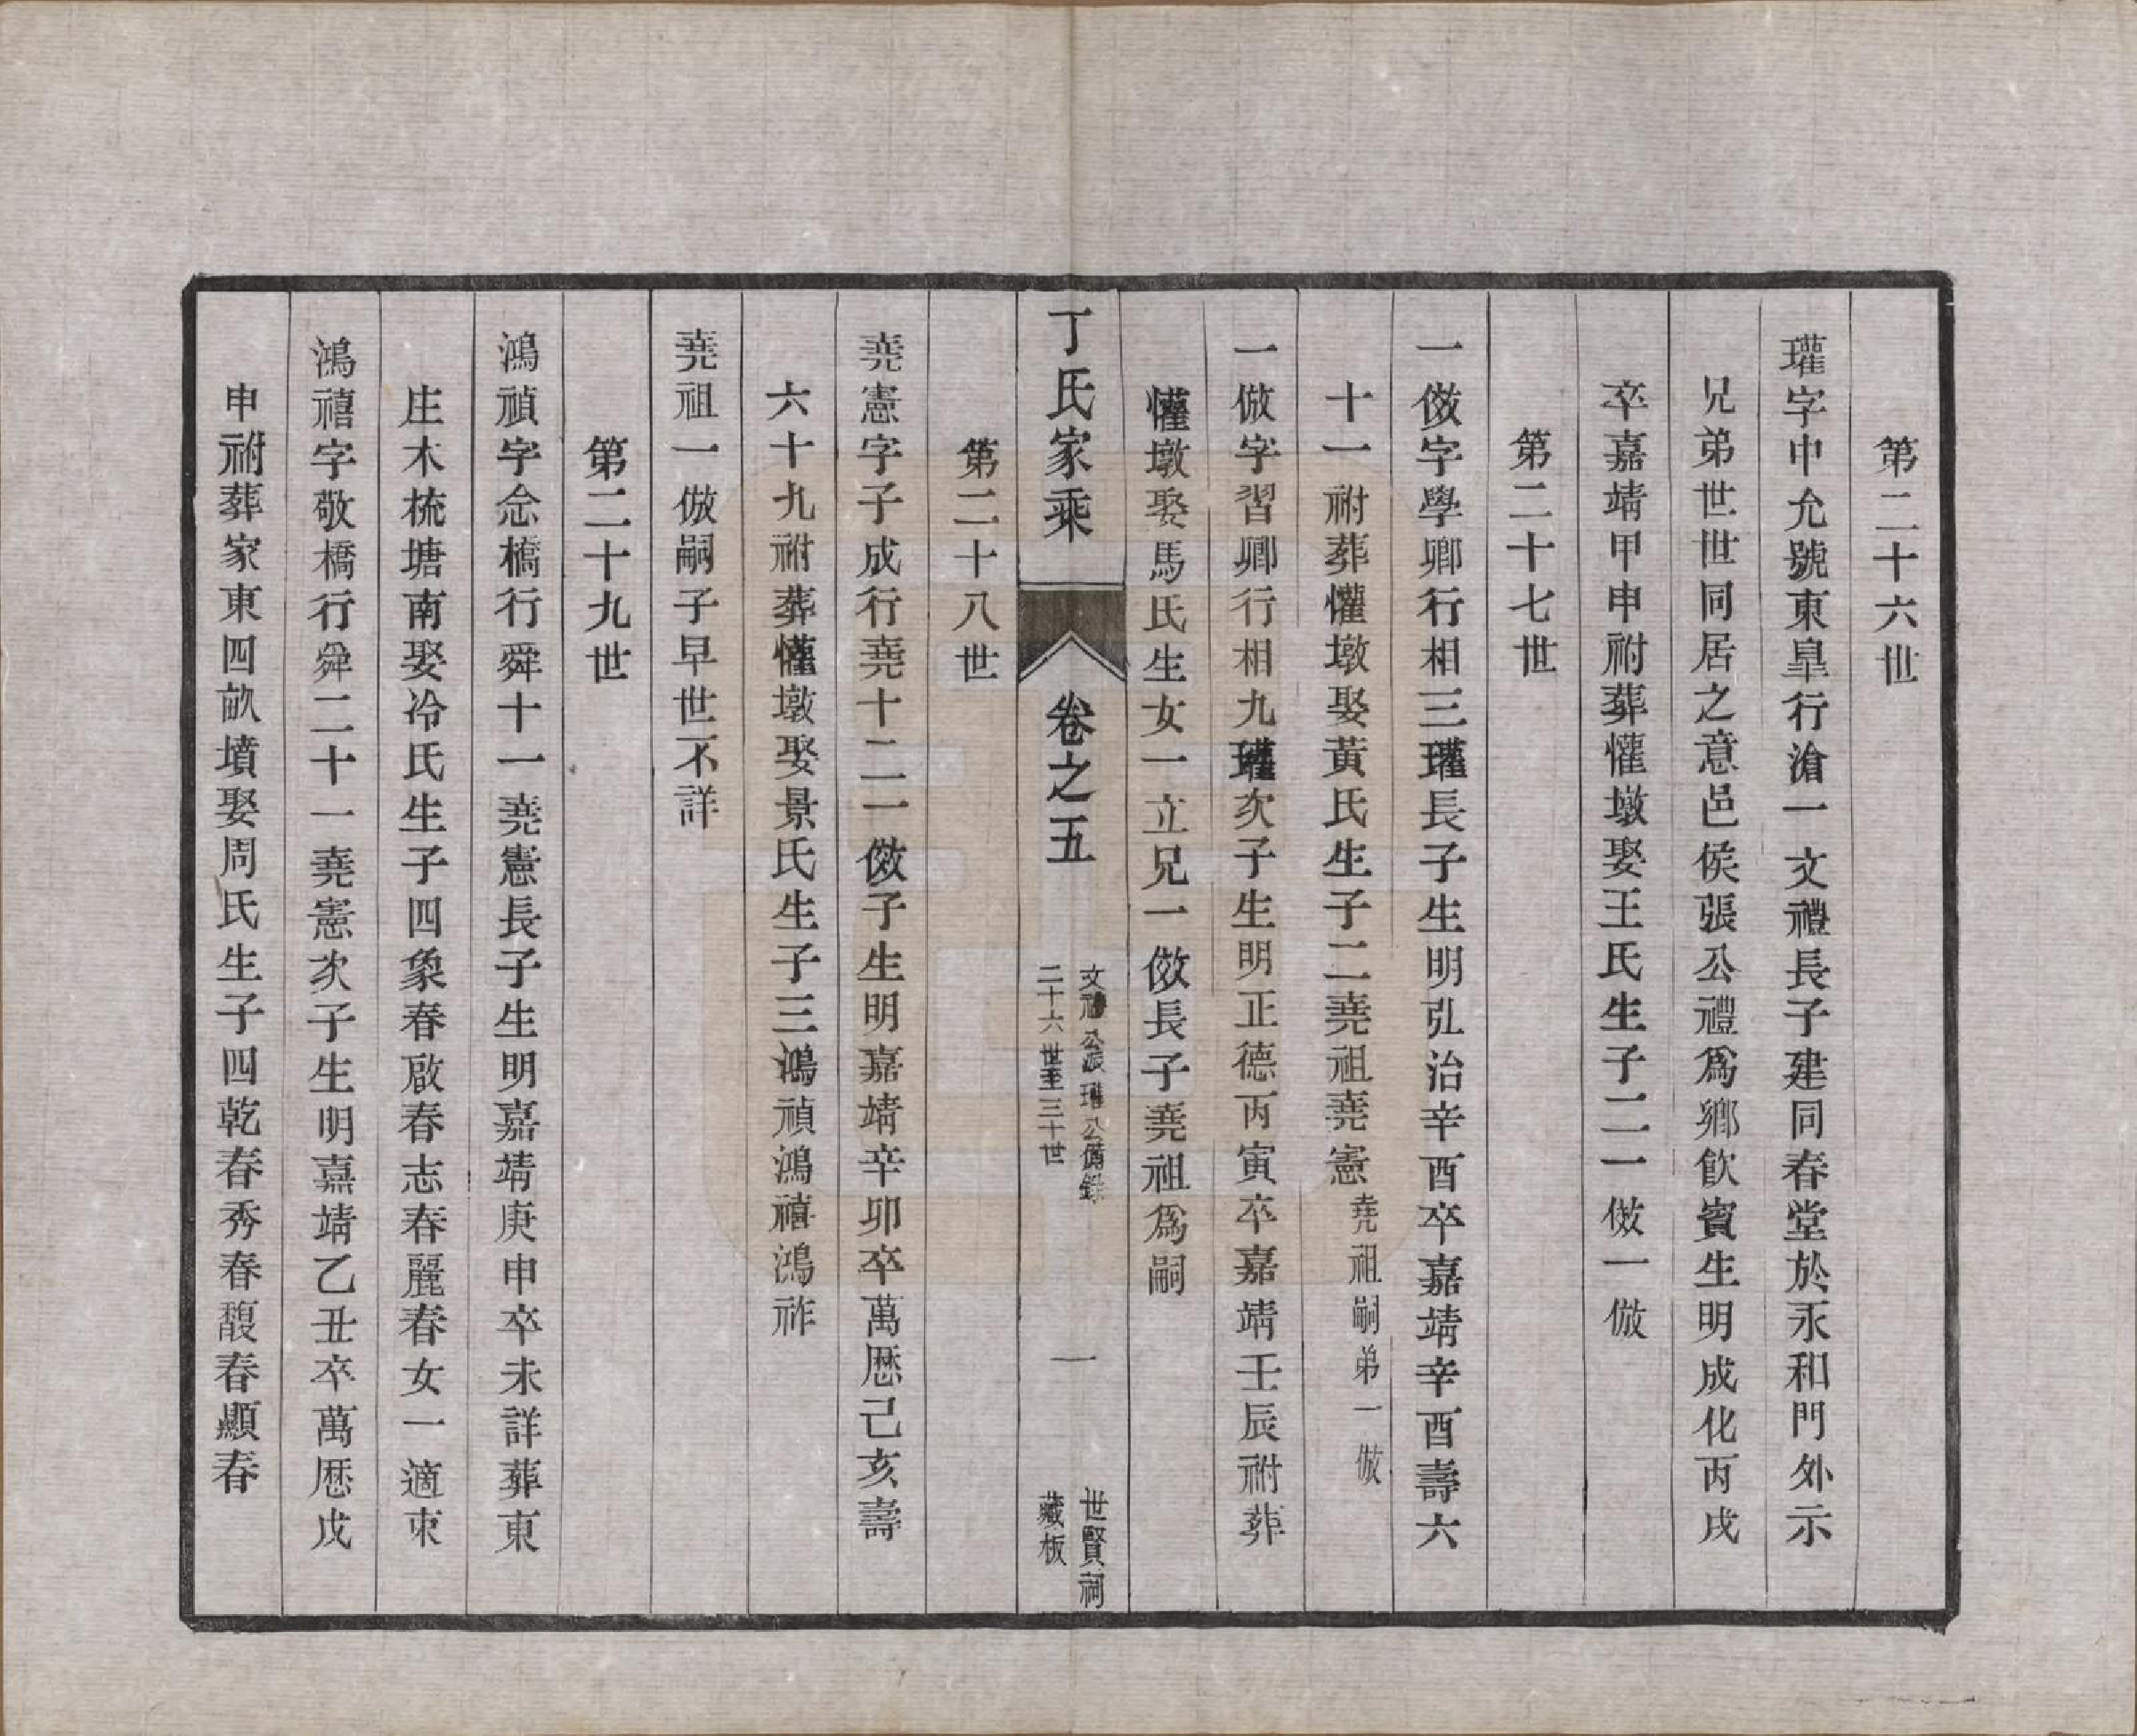 第二十六世
瓘字中允號東臯行滄一文禮長子建同春堂於永和門外示
兄弟世世同居之意邑侯張公禮爲鄉飲賓生明成化丙戌
卒嘉靖甲申祔葬懽墩娶王氏生子二一傚一倣
第二十七世
一傚字學卿行相三瓘長子生明弘治辛酉卒嘉靖辛酉壽六
十一祔葬懽墩娶黃氏生子二堯祖堯憲堯祖嗣弟一倣
一倣字習卿行相九瓘次子生明正德丙寅卒嘉靖壬辰祔葬
懽墩娶馬氏生女一立兄一傚長子堯祖爲嗣
丁氏家乘
卷之五
文禮公派瓘公傳錄
二十六世至三十世
一
世賢祠
藏板
第二十八世
堯憲字子成行堯十二一傚子生明嘉靖辛卯卒萬厯己亥壽
六十九祔葬懽墩娶景氏生子三鴻禎鴻禧鴻祚
堯祖一倣嗣子早世不詳
第二十九世
鴻禎字念橋行舜十一堯憲長子生明嘉靖庚申卒未詳葬東
庄木梳塘南娶冷氏生子四象春啟春志春麗春女一適束
鴻禧字敬橋行舜二十一堯憲次子生明嘉靖乙丑卒萬厯戊
申祔葬家東四畝墳娶周氏生子四乾春秀春馥春顯春